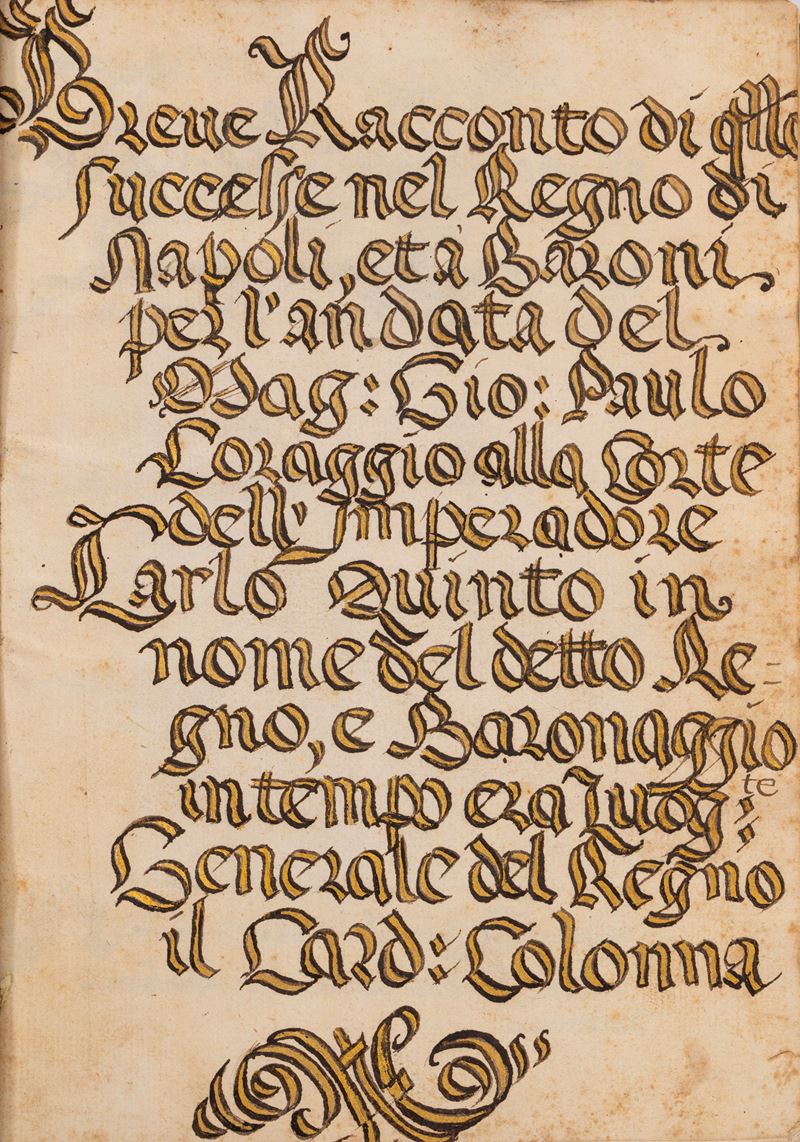 Breue Racconto di qllo
successe nel Regno di
Napoli, et à Baroni
per l'andata del
Mag: Gio: Paulo
Coraggio alla Corte
dell' Imperadore
Carlo Quinto in
nome del detto Re=
gno, e Baronaggio
in tempo era Luog:te
Generale del Regno
il Card: Colonna